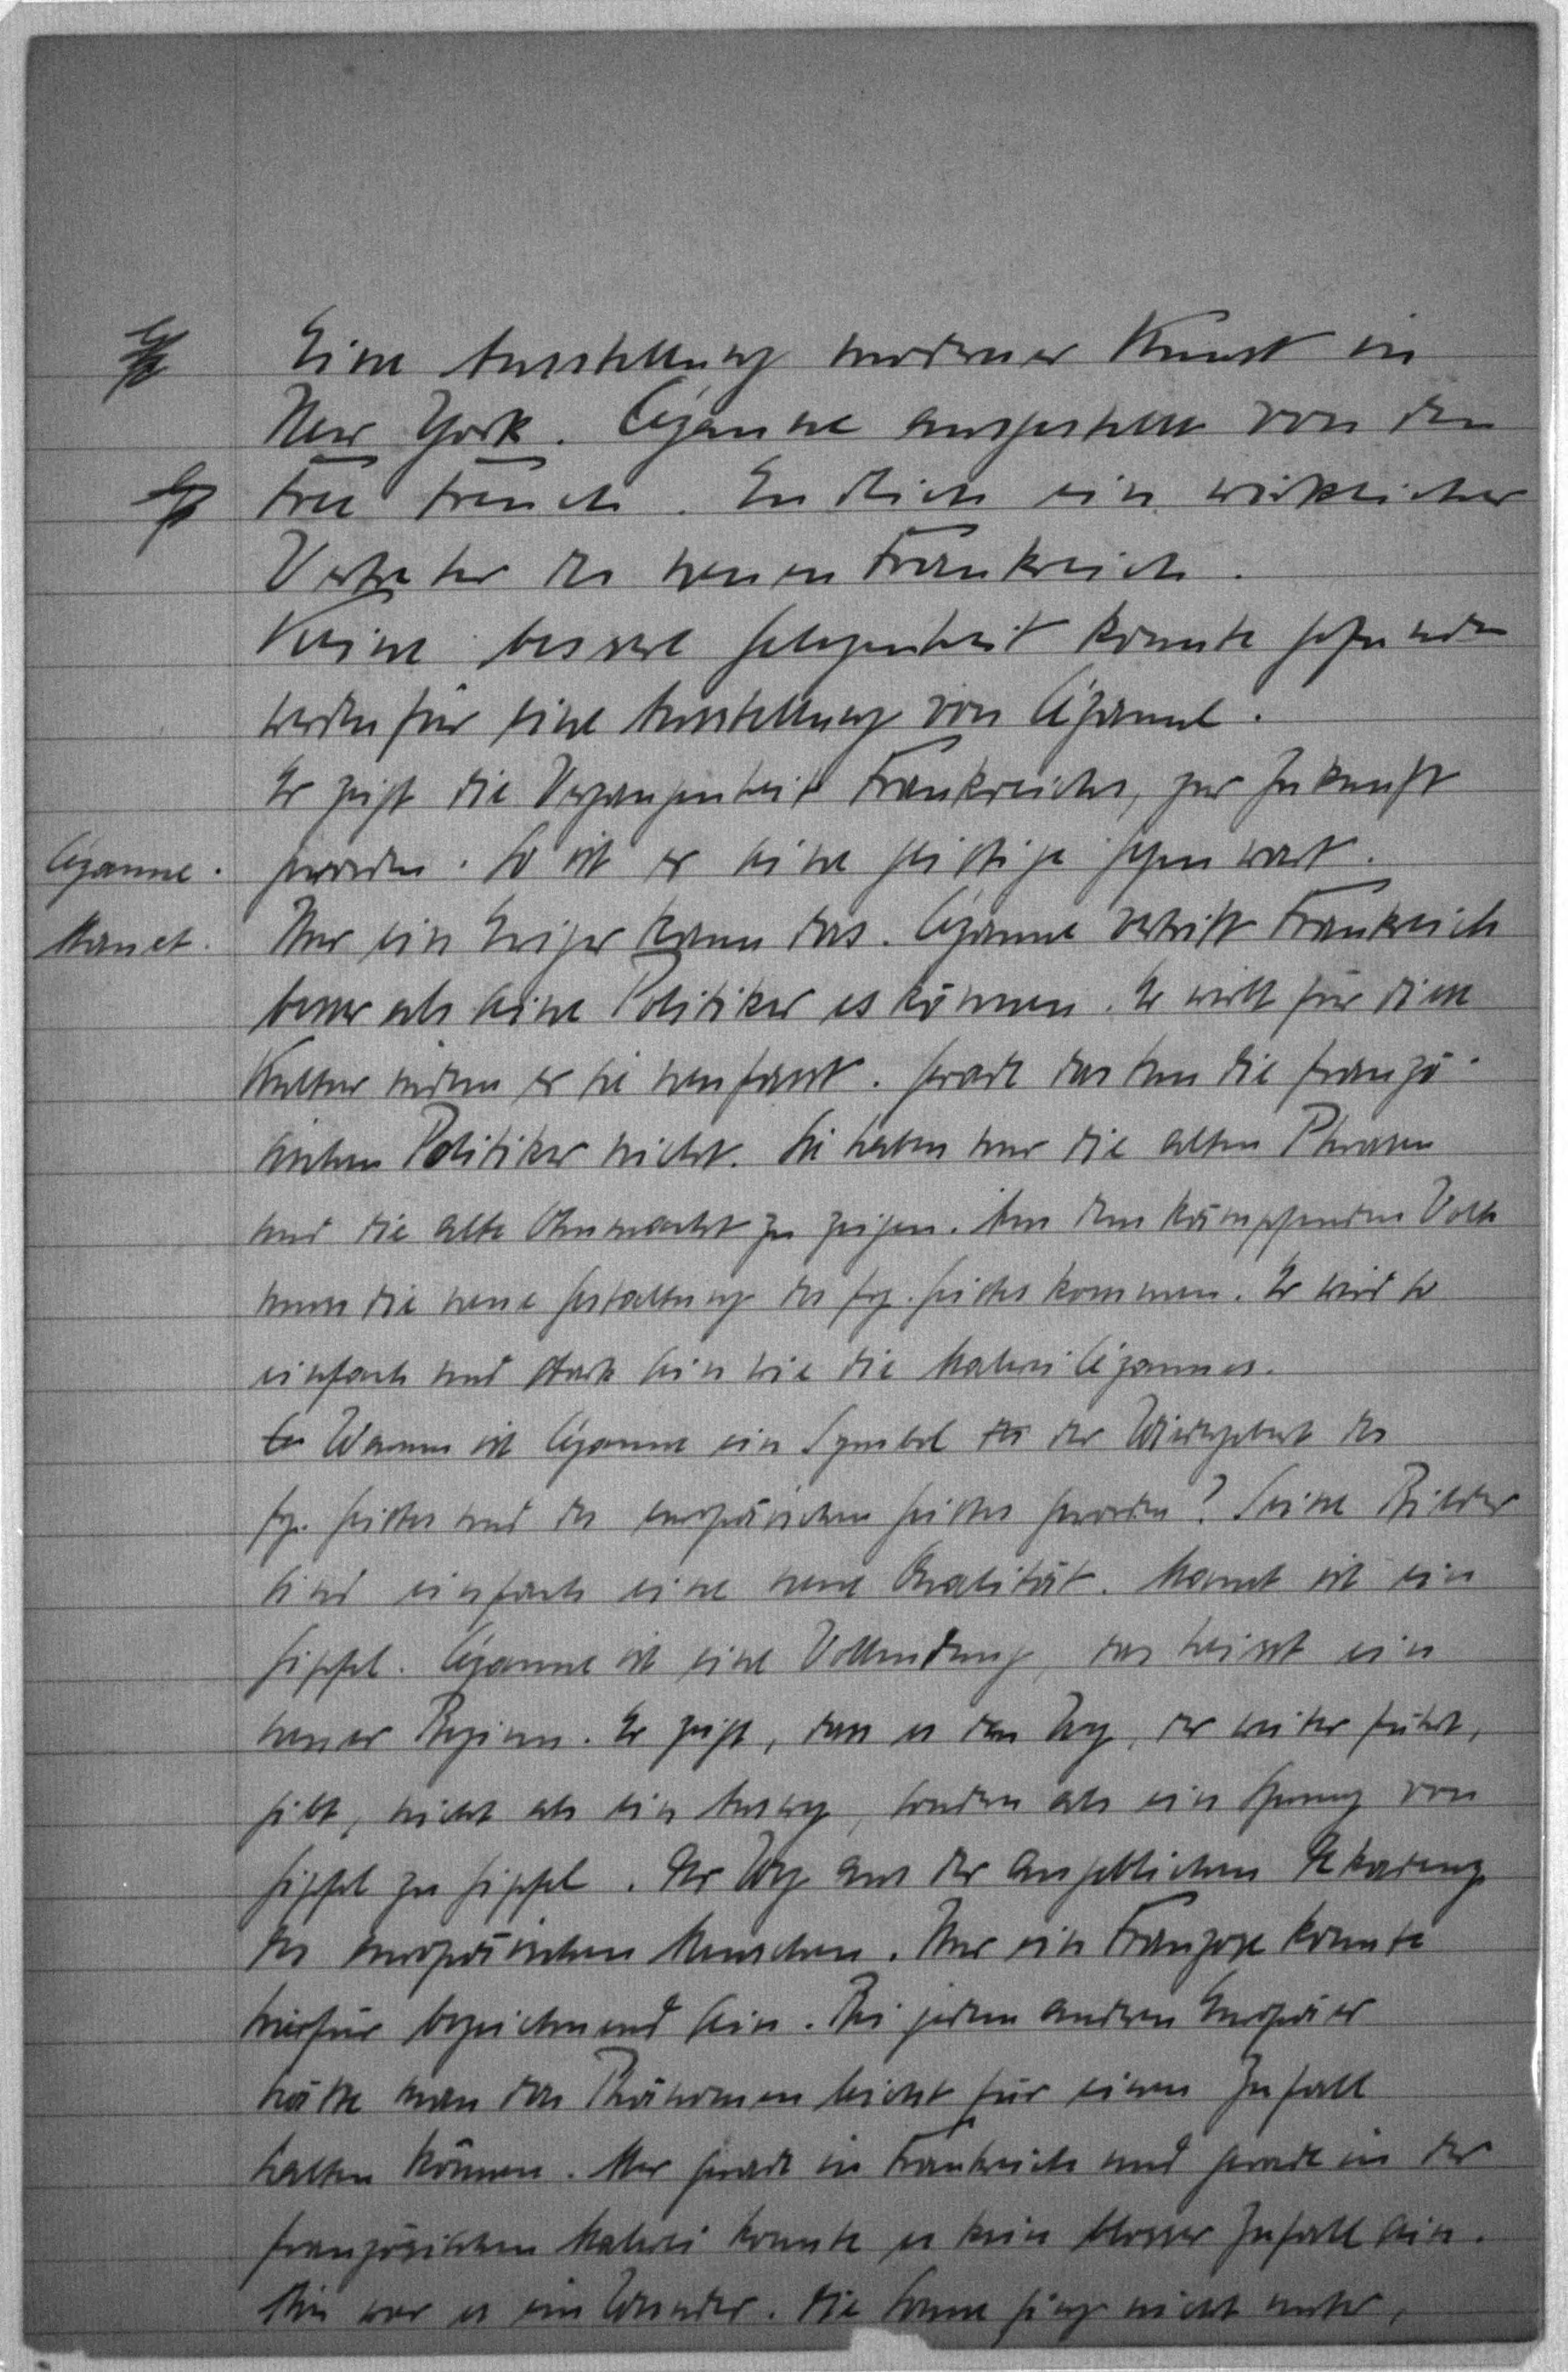 Eine Ausstellung moderner Kunst in
New York. Cézanne ausgestellt von den
Free French. Endlich ein wirklicher
Vertreter des neuen Frankreich.
Keine bessere Gelegenheit konnte gefunden
werden für eine Ausstellung von Cézanne.
Er zeigt die Vergangenheit Frankreichs, zur Zukunft
Cézanne. geworden. So ist er seine geistige Gegenwart.
Manet. Nur ein Ewiger kann das. Cézanne vertritt Frankreich
besser als seine Politiker es können. Er wirkt für diese
Kultur indem er sie neu fasst. Gerade das tun die franzö-
sischen Politiker nicht. Sie haben nur die alten Phrasen
und die alte Ohnmacht zu zeigen. Aus dem kämpfenden Volk
muss die neue Gestaltung des frz. Geistes kommen. Er wird so
einfach und stark sein wie die Malerei Cézannes.
Warum ist Cézanne ein Symbol der Wiedergeburt des
frz. Geistes und des europäischen Geistes geworden? Seine Bilder
sind einfach eine neue Qualität. Manet ist ein
Gipfel. Cézanne ist eine Vollendung, das heisst ein
neuer Beginn. Er zeigt, dass es den Weg, der weiter führt,
gibt, nicht als ein Ausweg, sondern als ein Sprung von
Gipfel zu Gipfel. Der Weg aus der angeblichen Dekadenz
des europäischen Menschen. Nur ein Franzose konnte
hierfür bezeichnend sein. Bei jedem anderen Europäer
hätte man das Phänomen leicht für einen Zufall
halten können. Aber gerade in Frankreich und gerade in der
französischen Malerei konnte es kein blosser Zufall sein.
Hier war es ein Wunder. Die Sonne ging nicht unter,